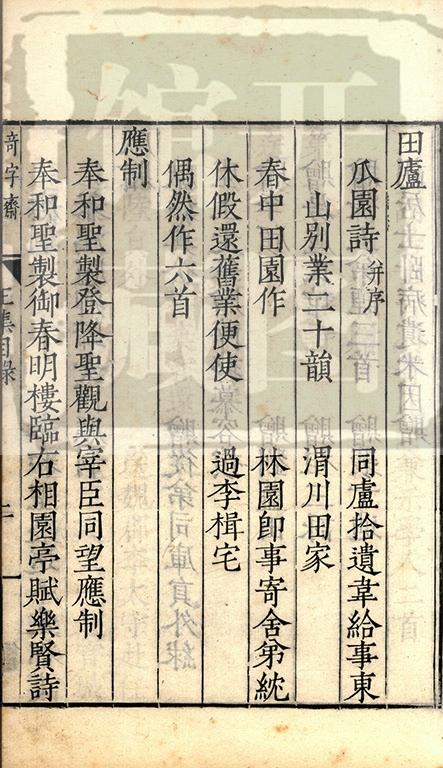 田廬
瓜園詩 并序 同盧拾遺韋給事東
山別業二十韻 渭川田家
春中田園作 林園即事寄舍弟紞
休假還舊業便使 過李楫宅
偶然作六首
應制
奉和聖製登降聖觀與宰臣同望應制
奉和聖製御春明樓臨右相園亭賦樂賢詩
奇字齋
王集目錄
二